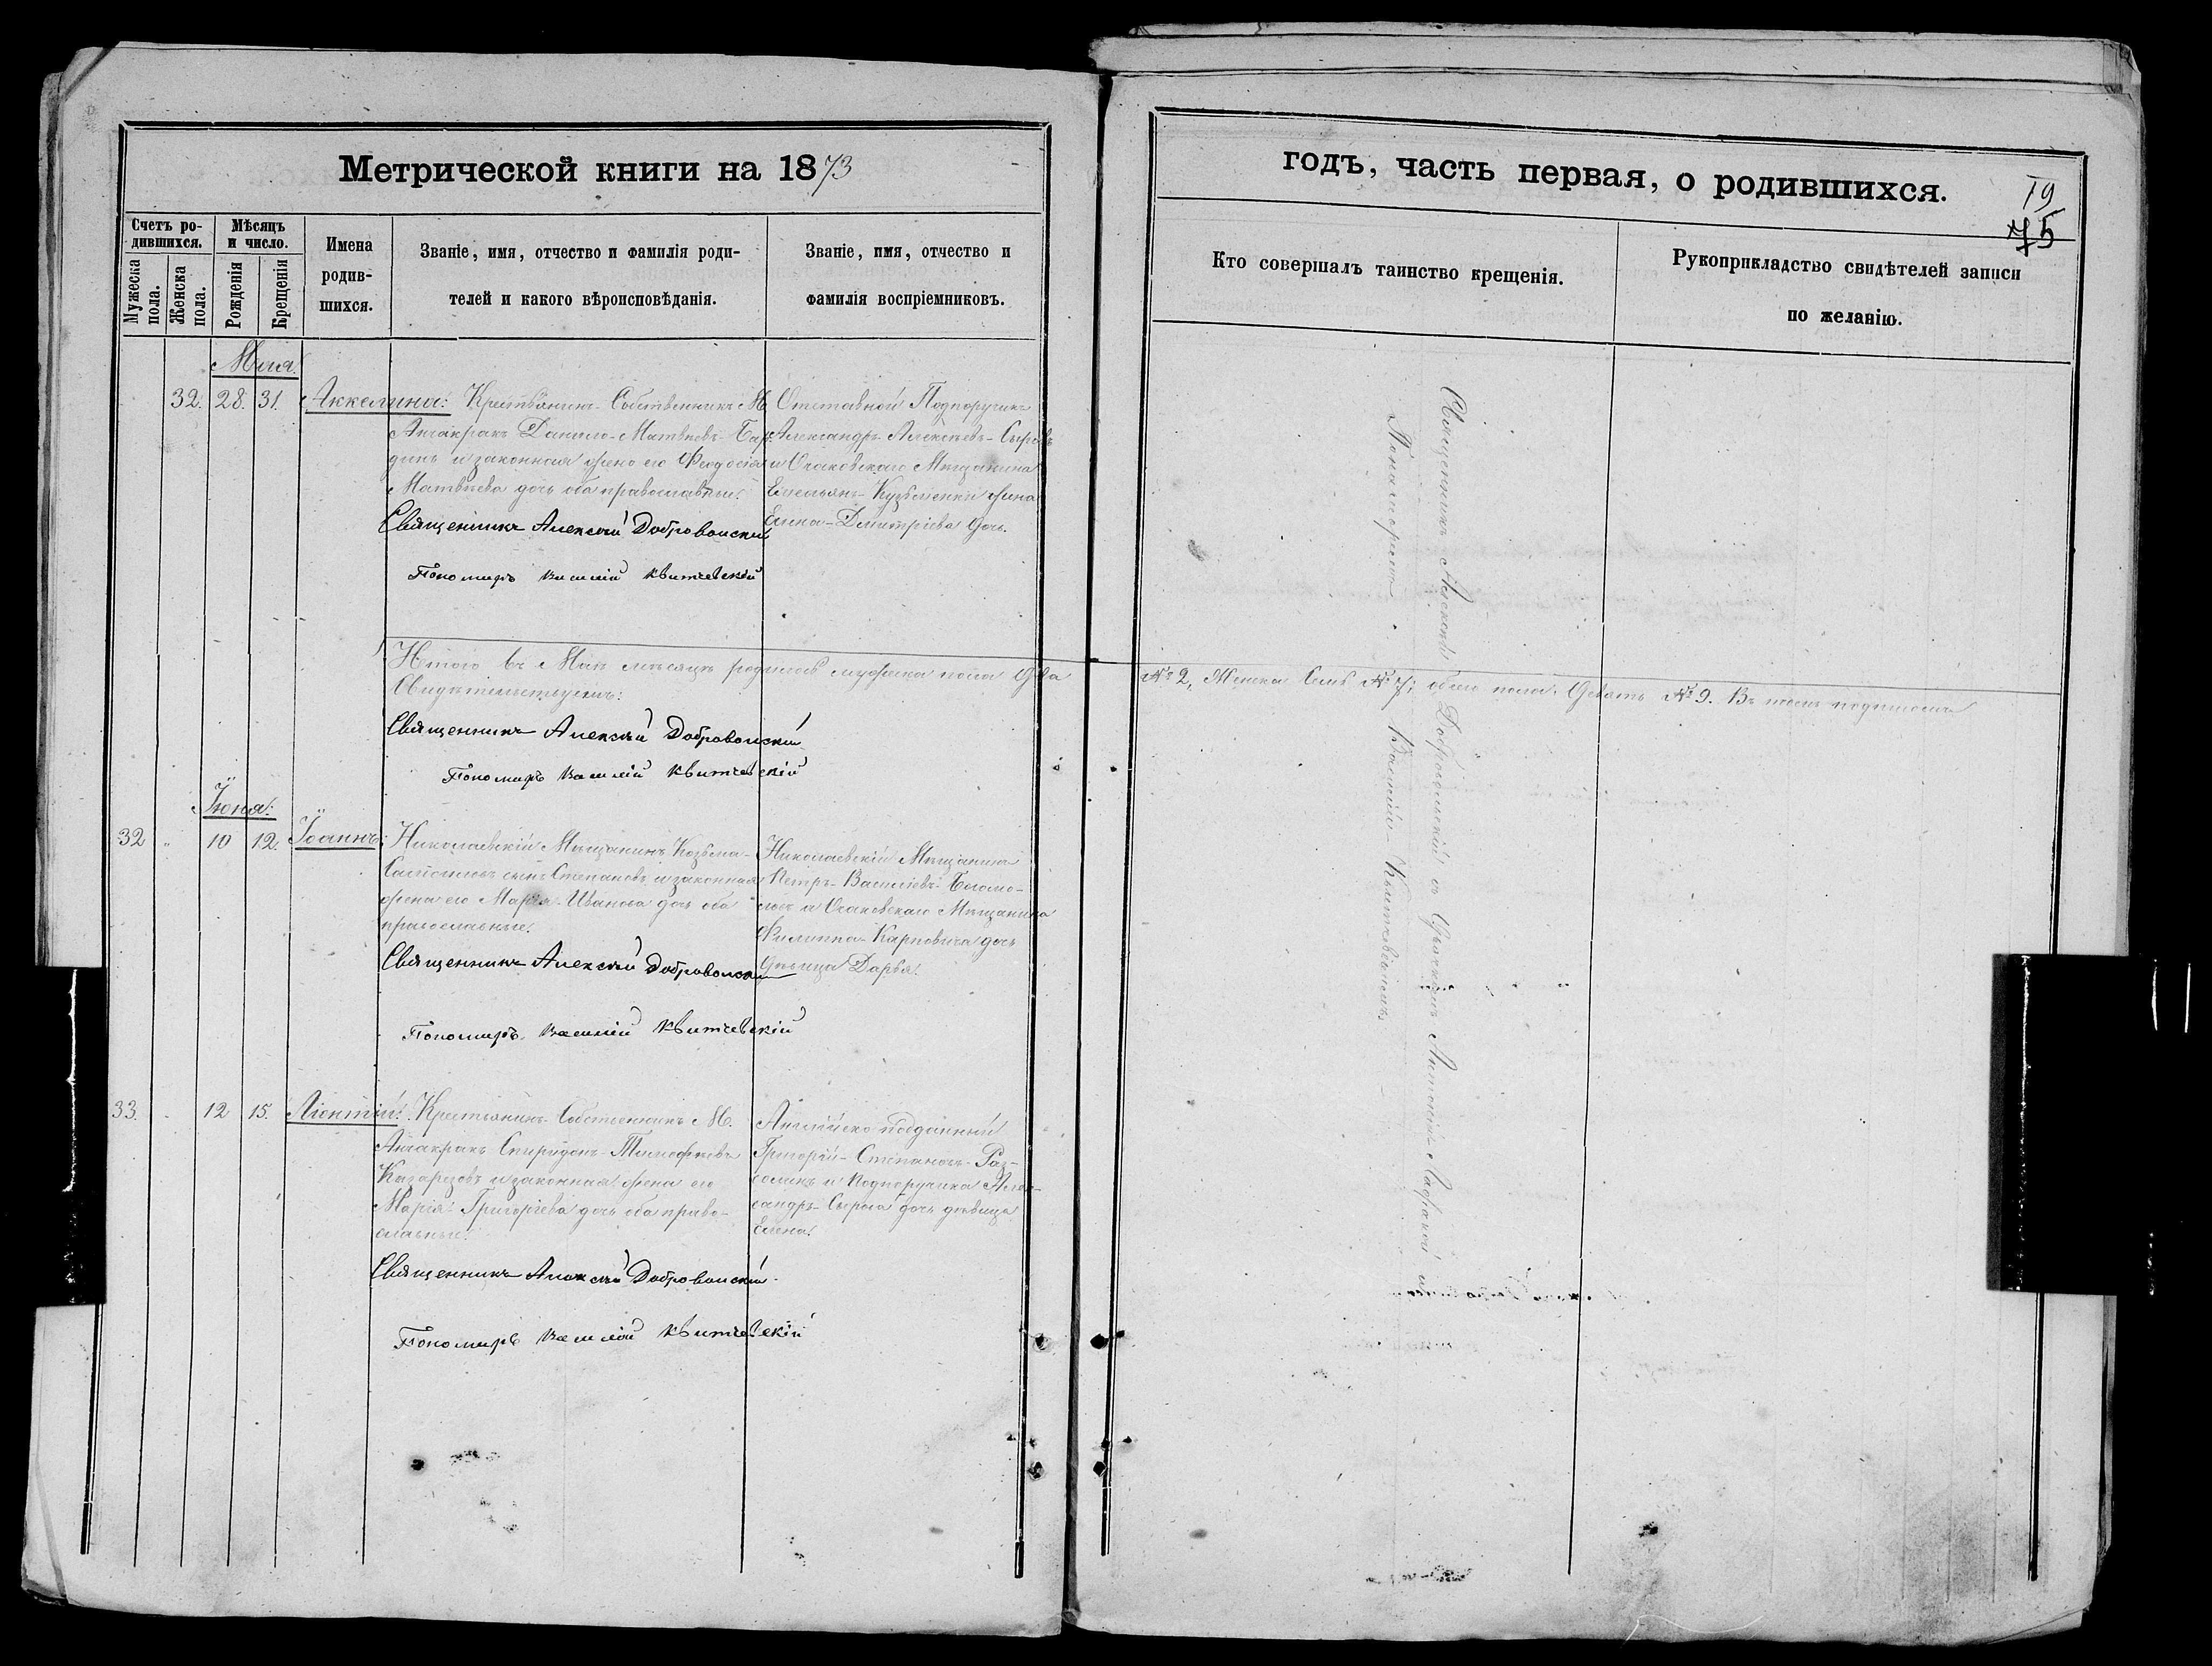 Метрической книги на 1873
Счетъ ро-
дившихся.
Мужеска
пола.
Женска
пола.
Мѣсяцъ
и число.
Рожденія
Крещенія
Имена
родив-
шихся.
Званіе, имя, отчество и фамилія роди-
телей и какого вѣроисповѣданія.
Званіе, имя, отчество и
фамилія воспріемниковъ.
Мая:
32. 28. 31. Аккелина:
Крестьянинъ Собственникъ М.
Анчакракъ Данило-Матвѣевъ-
динъ и законная жена его Феодосія
Матвѣева дочь оба православные.
Священникъ Алексѣй Добровольскій
Пономарь Василій Квитчевскій
Отставной Подпоручикъ
Александръ Алексѣевъ-Сыровъ
и Очаковскаго Мѣщанина
Емельянъ-Кузьменки жена
Елена-Дмитріева дочь.
Итого въ Маѣ мѣсяцѣ родилось мужеска пола два
Свидѣтельствуемъ:
Священникъ Алексѣй Добровольскій
Пономарь Василій Квитчевскій
Іюня:
32 „ 10 12. Іоаннъ:
Николаевскій Мѣщанинъ Козьма-
сынъ Степановъ и законная
жена его Марія Иванова дочь оба
православные.
Священникъ Алексѣй Добровольскій
Пономарь Василій Квитчевскій
Николаевскій Мѣщанинъ
Петръ-Василіевъ-Богомо-
ловъ и Очаковскаго Мѣщанина
Филиппа-Карповича дочь
дѣвица Дарья.
33. „ 12 15. Ліонтій:
Крестьянинъ Собственникъ М.
Анчакракъ Спиридонъ-Тимофѣевъ
и законная жена его
Марія Григоріева дочь оба право-
славные.
Священникъ Алексѣй Добровольскій
Пономарь Василій Квитчевскій
Англійско подданный
Григорій-Степановъ-
и Подпоручика Алек-
сандръ-Сырова дочь дѣвица
Елена.
годъ, часть первая, о родившихся.
19
75
Кто совершалъ таинство крещенія.
Рукоприкладство свидѣтелей записи
по желанію.
№ 2, Женска Семь № 7; обоего пола: Девять № 9. Въ томъ подписомъ
Священникъ Алексѣй Добровольскій съ
Пономаремъ Василій Квитчевскимъ.